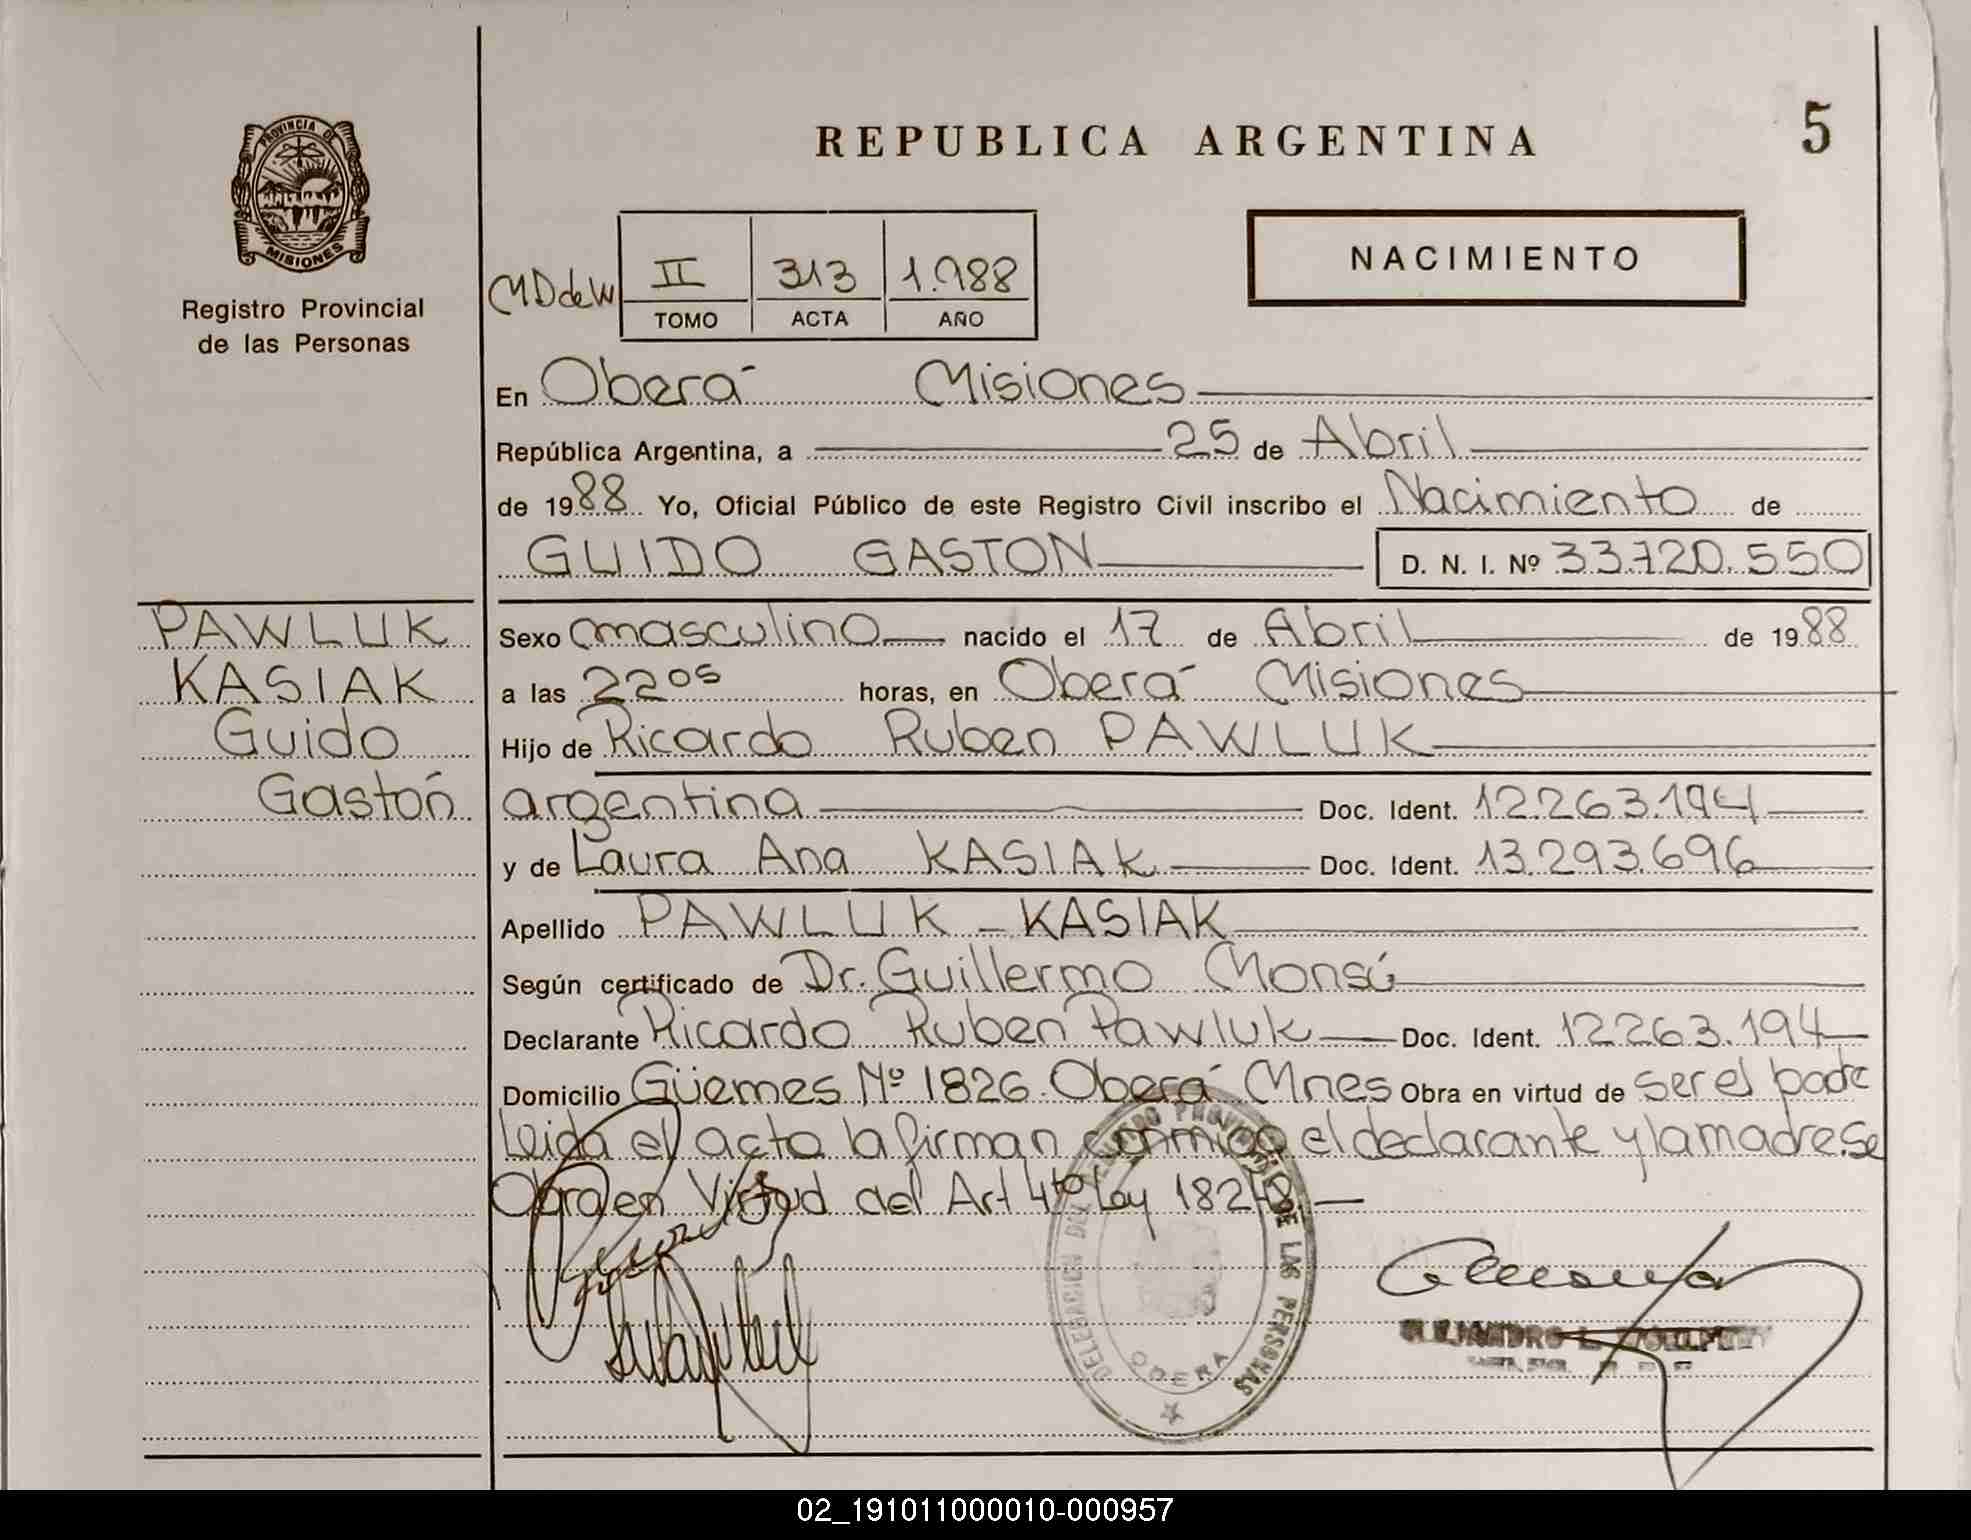 REPUBLICA ARGENTINA
5
PROVINCIA DE
MISIONES
Registro Provincial
de las Personas
NACIMIENTO
II 313 1.988
TOMO ACTA AÑO
En Oberá Misiones
República Argentina, a 25 de Abril
de 1988 Yo, Oficial Público de este Registro Civil inscribo el Nacimiento de
GUIDO GASTON D. N. I. Nº 33.720.550
PAWLUK
KASIAK
Guido
Gastón
Sexo masculino nacido el 17 de Abril de 1988
a las 22⁰⁵ horas, en Oberá Misiones
Hijo de Ricardo Ruben PAWLUK
argentina Doc. Ident. 12.263.194
y de Laura Ana KASIAK Doc. Ident. 13.293.696
Apellido PAWLUK - KASIAK
Según certificado de Dr. Guillermo Monsú
Declarante Ricardo Ruben Pawluk Doc. Ident. 12263.194
Domicilio Güemes Nº 1826 Oberá Mnes Obra en virtud de ser el padre
Leida el acta la firman conmigo el declarante y la madre. Se
Obra en Virtud del Art 4to Ley 18248
DELEGACION DEL REGISTRO PROVINCIAL DE LAS PERSONAS
OBERA
02_191011000010-000957